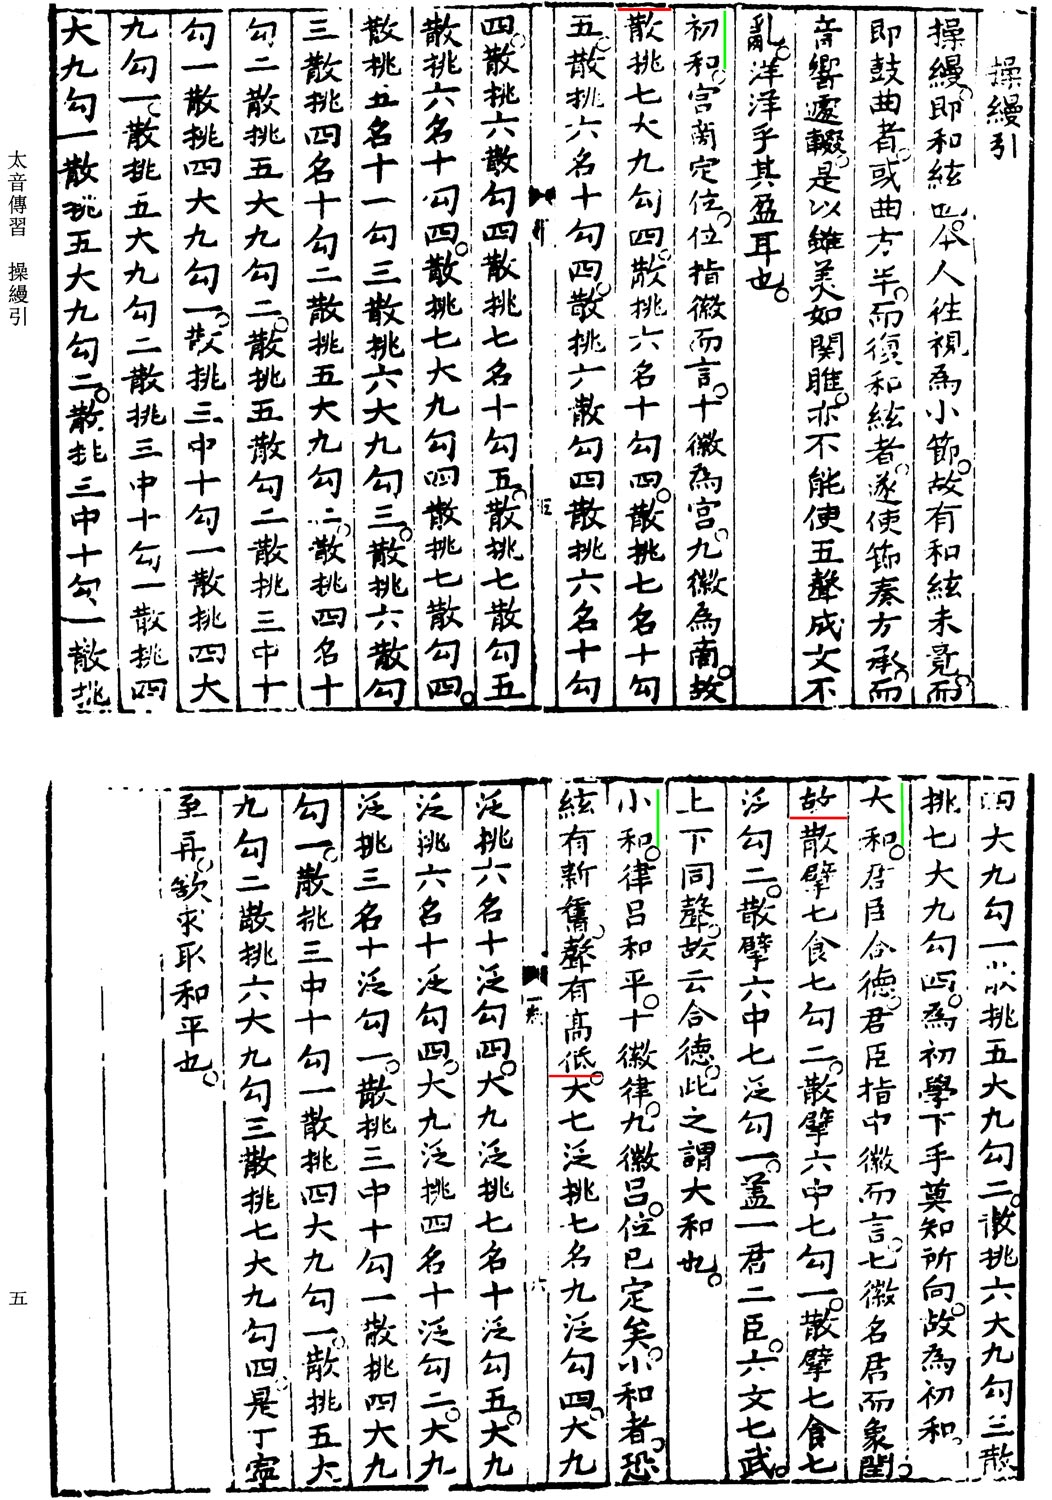 操縵引
操縵即和絃也今人往視為小節故有和絃未竟而
即鼓曲者或曲方半而復和絃者遂使節奏方承而
音響遽輟是以雖美如関雎亦不能使五聲成文不
亂洋洋乎其盈耳也
初和宮商定位位指徽而言十徽為宮九徽為商故
散挑七大九勾四散挑六名十勾四散挑七名十勾
五散挑六名十勾四散挑六散勾四散挑六名十勾
四散挑六散勾四散挑七名十勾五散挑七散勾五
散挑六名十勾四散挑七大九勾四散挑七散勾四
散挑五名十一勾三散挑六大九勾三散挑六散勾
三散挑四名十勾二散挑五大九勾二散挑四名十
勾二散挑五大九勾二散挑五散勾二散挑三中十
勾一散挑四大九勾一散挑三中十勾一散挑四大
九勾一散挑五大九勾二散挑三中十勾一散挑四
大九勾一散挑五大九勾二散挑三中十勾一散挑
太音傳習 操縵引
四大九勾一散挑五大九勾二散挑六大九勾三散
挑七大九勾四為初學下手莫知所向故為初和
大和君臣合德君臣指中徽而言七徽名君而象閏
故散擘七食七勾二散擘六中七勾一散擘七食七
泛勾二散擘六中七泛勾一蓋一君二臣六文七武
上下同聲故云合德此之謂大和也
小和律呂和平十徽律九徽呂位已定矣小和者恐
絃有新舊聲有高低大七泛挑七名九泛勾四大九
一卷
六
泛挑六名十泛勾四大九泛挑七名十泛勾五大九
泛挑六名十泛勾四大九泛挑四名十泛勾二大九
泛挑三名十泛勾一散挑三中十勾一散挑四大九
勾一散挑三中十勾一散挑四大九勾一散挑五大
九勾二散挑六大九勾三散挑七大九勾四是丁寧
至再欲求取和平也
五